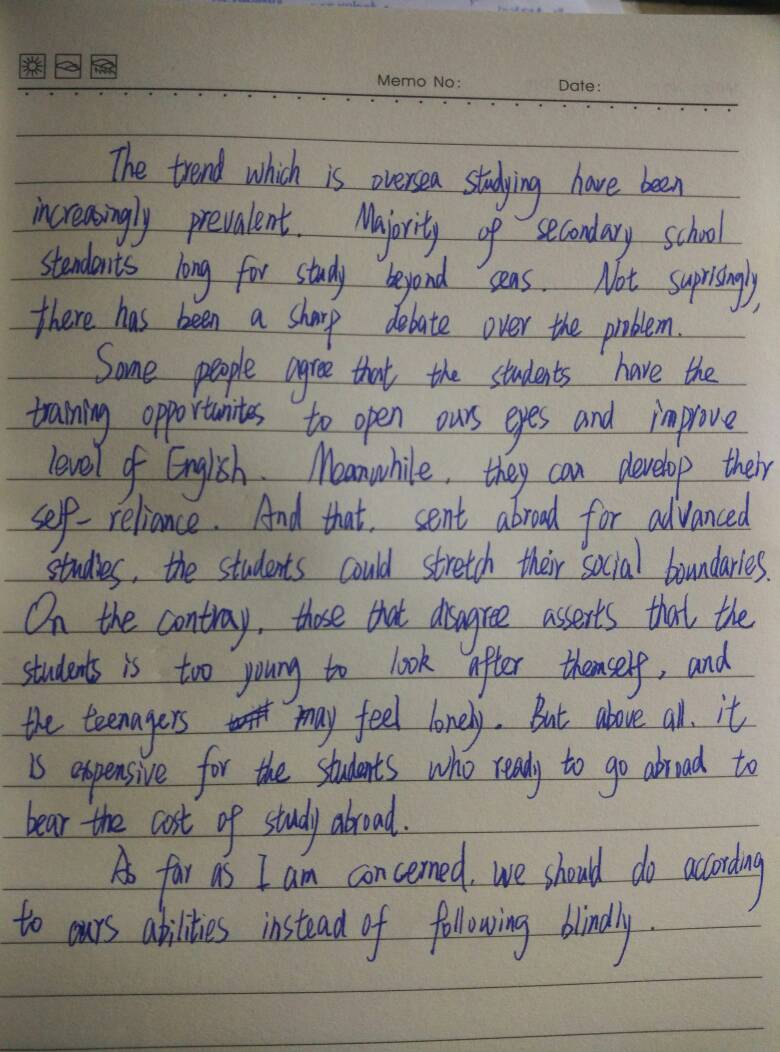 Memo No:
Date:
The trend which is oversea studying have been
increasingly prevalent. Majority of secondary school
stendents long for study beyond seas. Not suprisingly,
there has been a sharp debate over the problem.
Some people agree that the students have the
training opportunites to open ours eyes and improve
level of English. Meanwhile, they can develop their
self-reliance. And that, sent abroad for advanced
studies, the students could stretch their social boundaries.
On the contray, those that disagree asserts that the
students is too young to look after themself, and
the teenagers may feel lonely. But above all, it
is expensive for the students who ready to go abroad to
bear the cost of study abroad.
As far as I am concerned, we should do according
to ours abilities instead of following blindly.